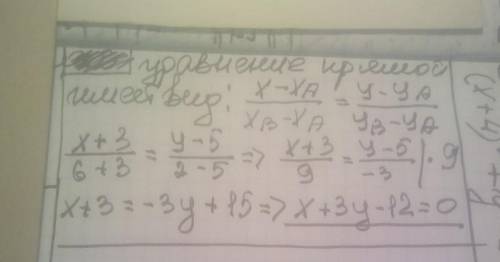 уравнение прямой
имеет вид: (x-x_A)/(x_B-x_A) = (y-y_A)/(y_B-y_A)
(x+3)/(6+3) = (y-5)/(2-5) => (x+3)/9 = (y-5)/-3 | · 9
x+3 = -3y+15 => x+3y-12=0